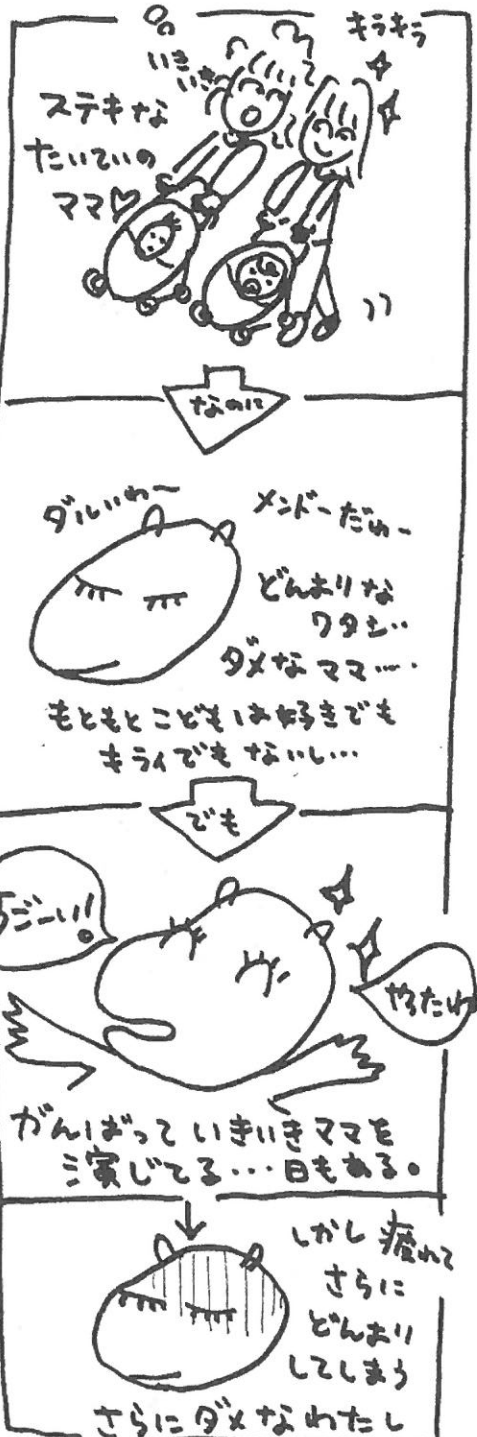 キラキラ
いき
いき
ステキな
たいていの
ママ♡
なのに
ダルいわ〜
メンドーだわ〜
どんよりな
ワタシ‥
ダメなママ‥‥
もともとこどもは好きでも
キライでもないし…
でも
すごーい!
やったね
がんばっていきいきママを
演じてる…日もある。
しかし疲れて
さらに
どんより
してしまう
さらにダメなわたし